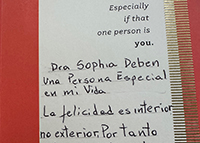 Especially
if that
one person is
you.
Dra Sophia Deben
Una Persona Especial
en mi Vida
La felicidad es interior
no exterior. Por tanto